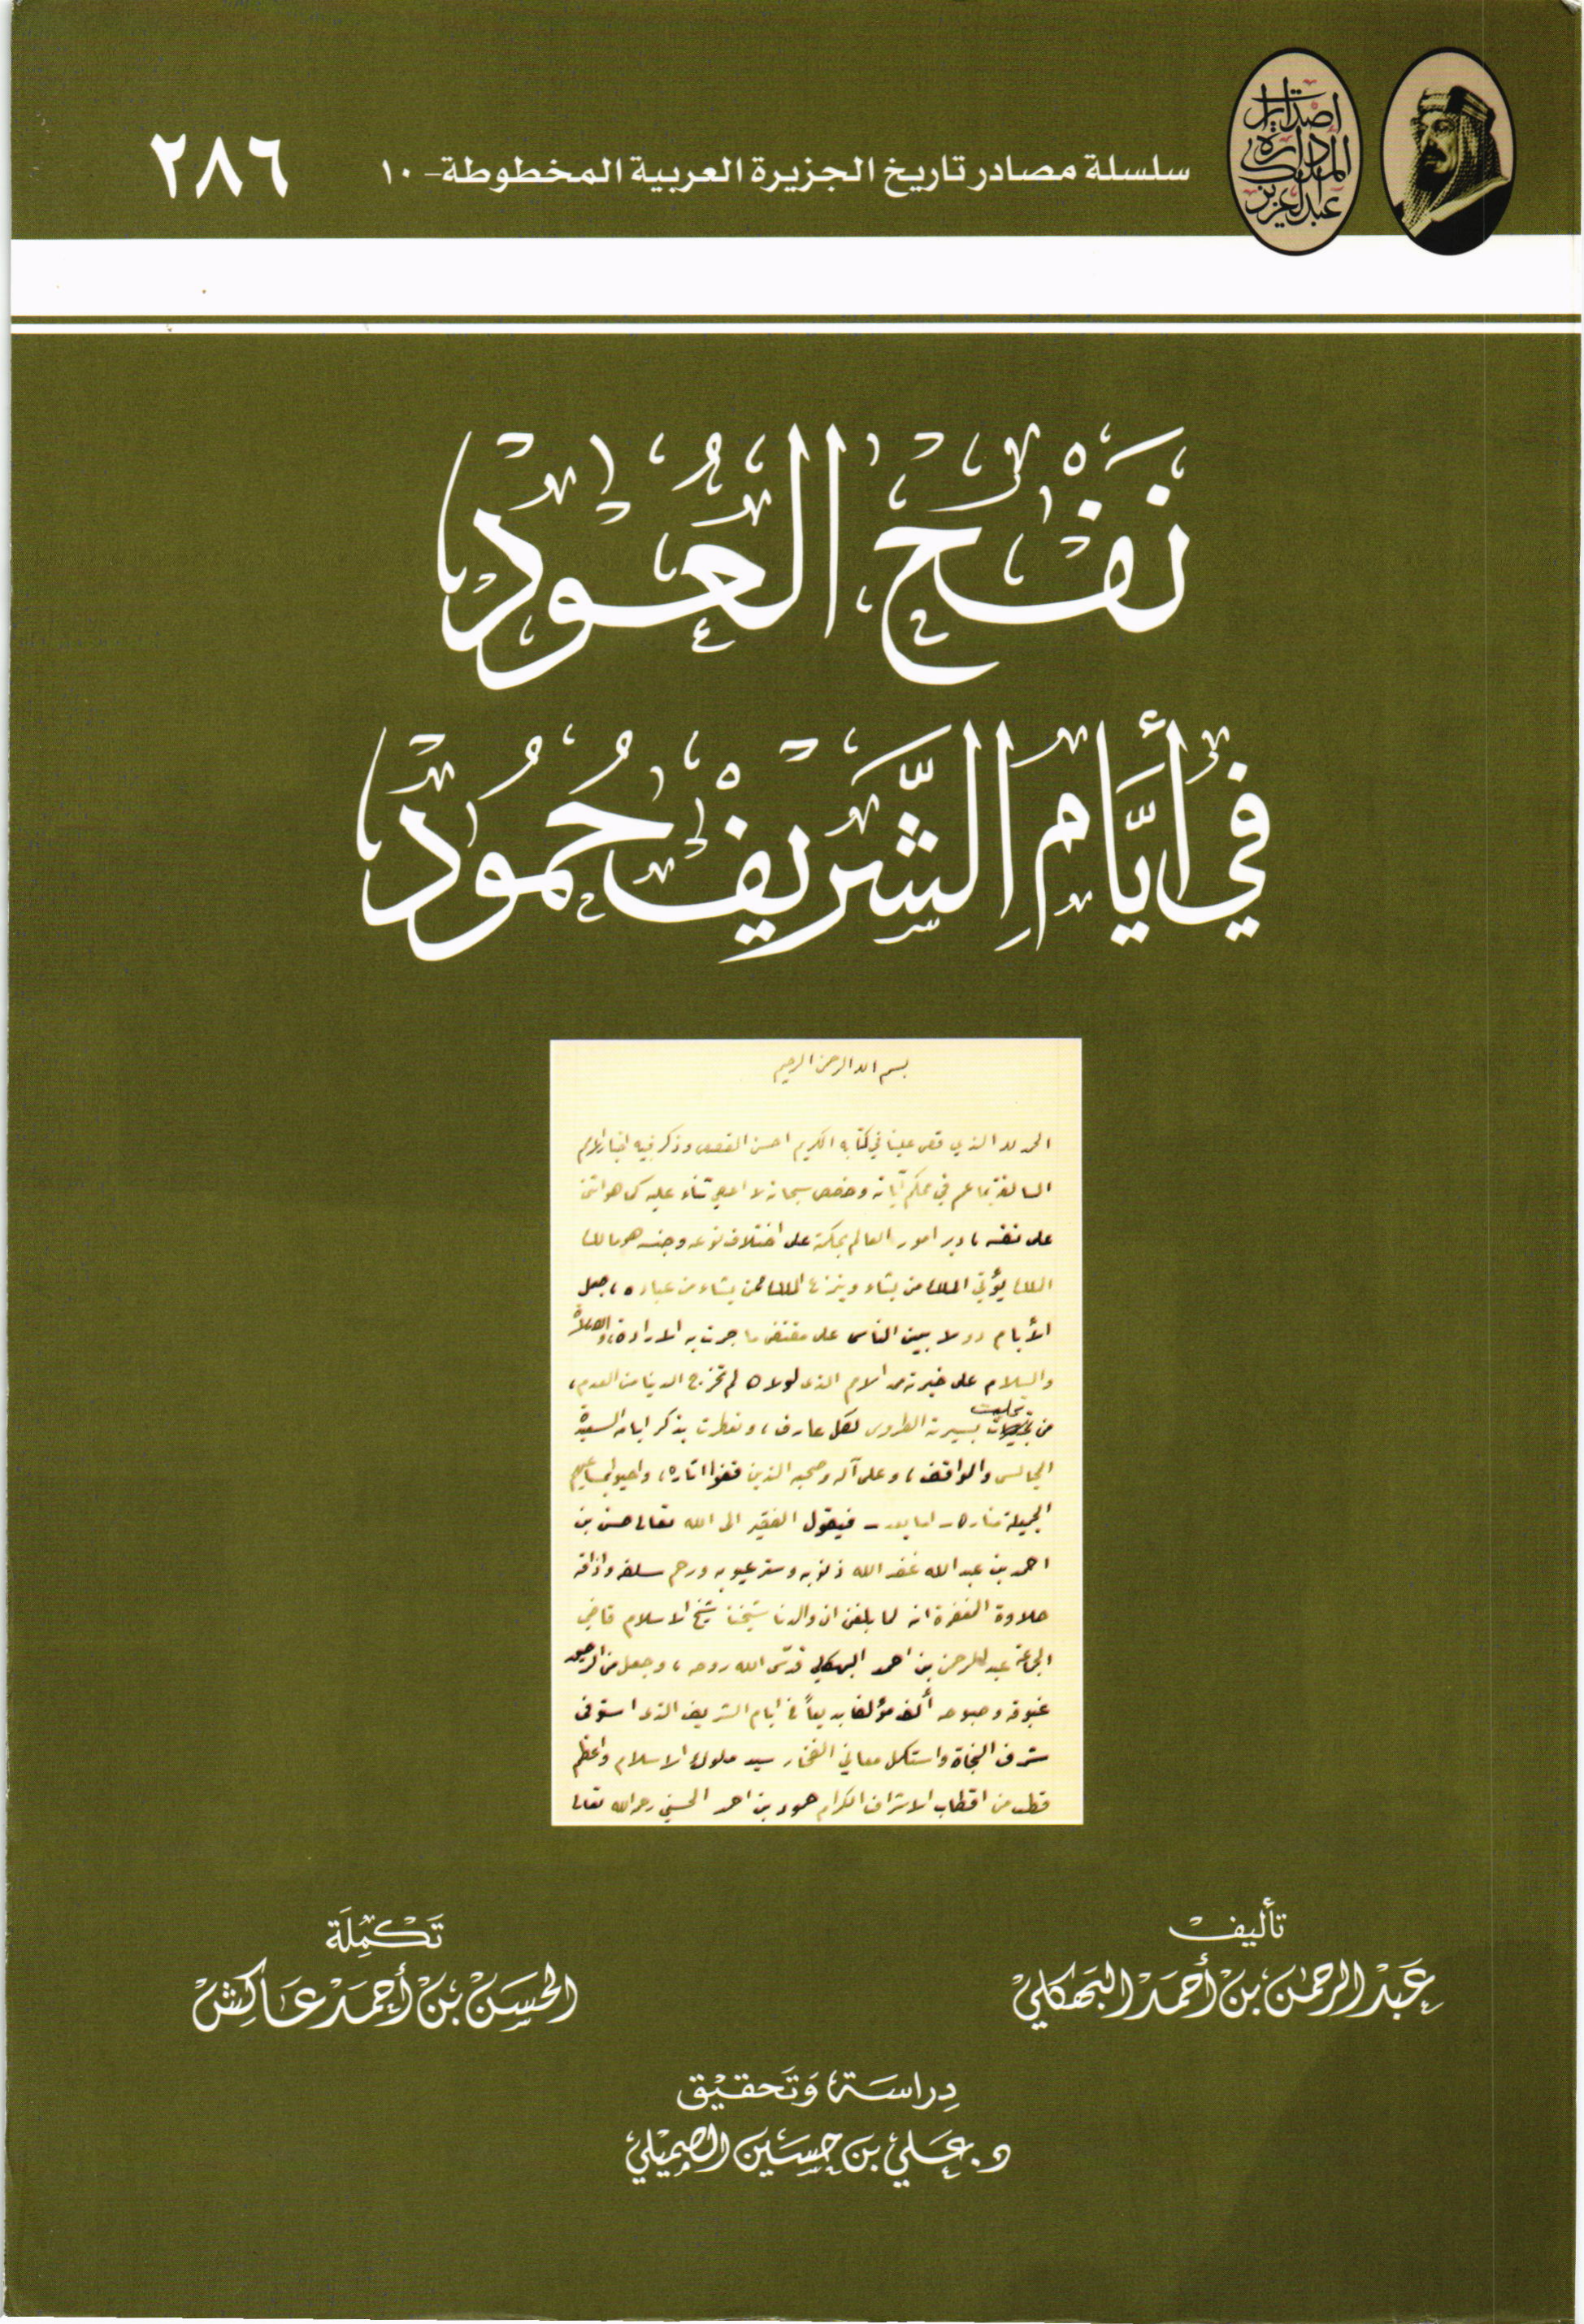 إصدارات
الدارة
الملك
عبدالعزيز
سلسلة مصادر تاريخ الجزيرة العربية المخطوطة - ١٠
٢٨٦
نَفْحُ العُوْدِ
في أيَّامِ الشَّرِيْفِ حُمُوْد
بسم الله الرحمن الرحيم
الحمد لله الذي قص علينا في كتابه الكريم احسن القصص وذكر فيه اخبار الامم
السالفة بما عم في محكم آياته وخصص سبحانه لا احصي ثناء عليه كما هو اثنى
على نفسه، دبر امور العالم بحكمة على اختلاف نوعه وجنسه هو مالك
الملك يؤتي الملك من يشاء وينزع الملك ممن يشاء من عباده، جعل
الأيام دولا بين الناس على مقتضى ما جرت به الارادة، والصلاة
والسلام على خيرته من الامم الذى لولاه لم تخرج الدنيا من العدم،
من تحلت بسيرته الطروس لكل عارف، وتعطرت بذكر ايامه السعيدة
المجالس والمواقف، وعلى آله وصحبه الذين قفوا اثاره، واحيوا بمساعيهم
الجميلة مناره - اما بعد - فيقول الفقير الى الله تعالى حسن بن
احمد بن عبد الله غفر الله ذنوبه وستر عيوبه ورحم سلفه واذاقه
حلاوة المغفرة انه لما بلغن ان والدنا شيخنا شيخ الاسلام قاضي
الجماعة عبد الرحمن بن احمد البهكلي قدس الله روحه، وجعل من الرحيق
غبوقه وصبوحه ألف مؤلفا بديعاً في ايام الشريف الذى استوفى
شرف النجاة واستكمل معاني الفخار سيد ملوك الاسلام واعظم
قطب من اقطاب الاشراف الكرام حمود بن احمد الحسني رحمه الله تعالى
تأليف
عَبْد الرحمن بن أحمَد البَهكلي
تَكمِلَة
الحسَن بن أحمَد عَاكِش
دِراسَة وَتَحقيْق
د. عَلي بن حسَين الصميلي